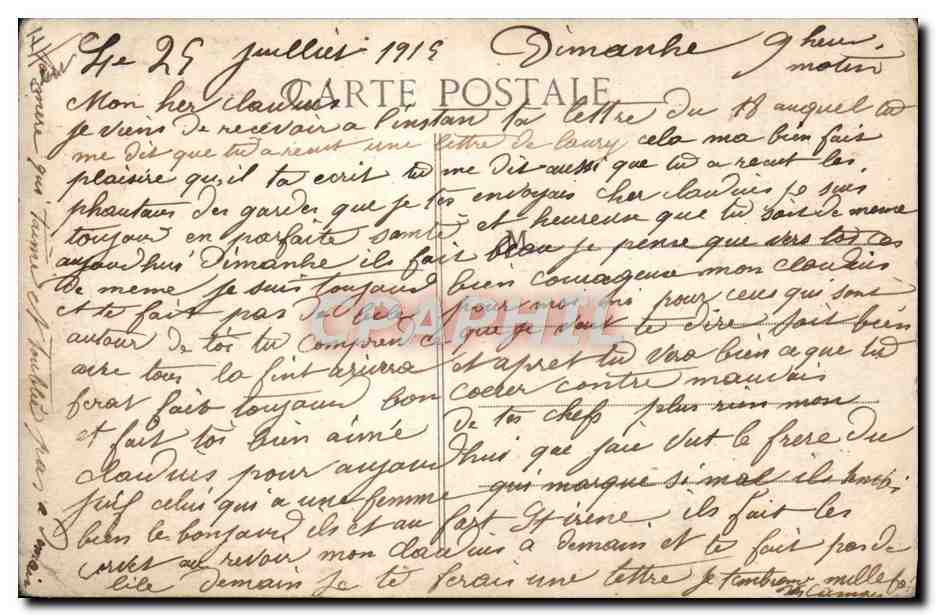 Le 25 juilliet 1915 Dimanhe 9 heur
matin
CARTE POSTALE
Mon her claudius
je viens de recevoir a l'instan ta lettre du 18 auquel tu
me dit que tu a recut une lettre de laury cela ma bien fait
plaisire qu,il ta ecrit tu me dit aussi que tu a recut les
des gardes que je tes envoyais cher claudius je suis
toujour en parfaite santé et heureuse que tu soit de meme
aujourdhui Dimanhe ils fait beau je pense que vers toi ces
de meme je suis toujour bien courageux mon claudius
et te fait pas de bile pour moi ni pour ceux qui sont
autour de toi tu comprend ce que je veut te dire soit bien
avec tous la fint arivera et apret tu vera bien ce que tu
ferat fait toujour bon coeur contre mauvais
et fait toi bien aimé de tes chefs plus rien mon
claudius pour aujourdhui que jaie vut le frere du
juif celui qui a une femme qui marque si mal ils
bien le bonjour ils et au fort St irené ils fait les
corvet au revoir mon claudius a demain et te fait pas de
bile demain je te ferais une lettre je tembrasse mille
qui taime et toublit pas a
M
CPAPHIL